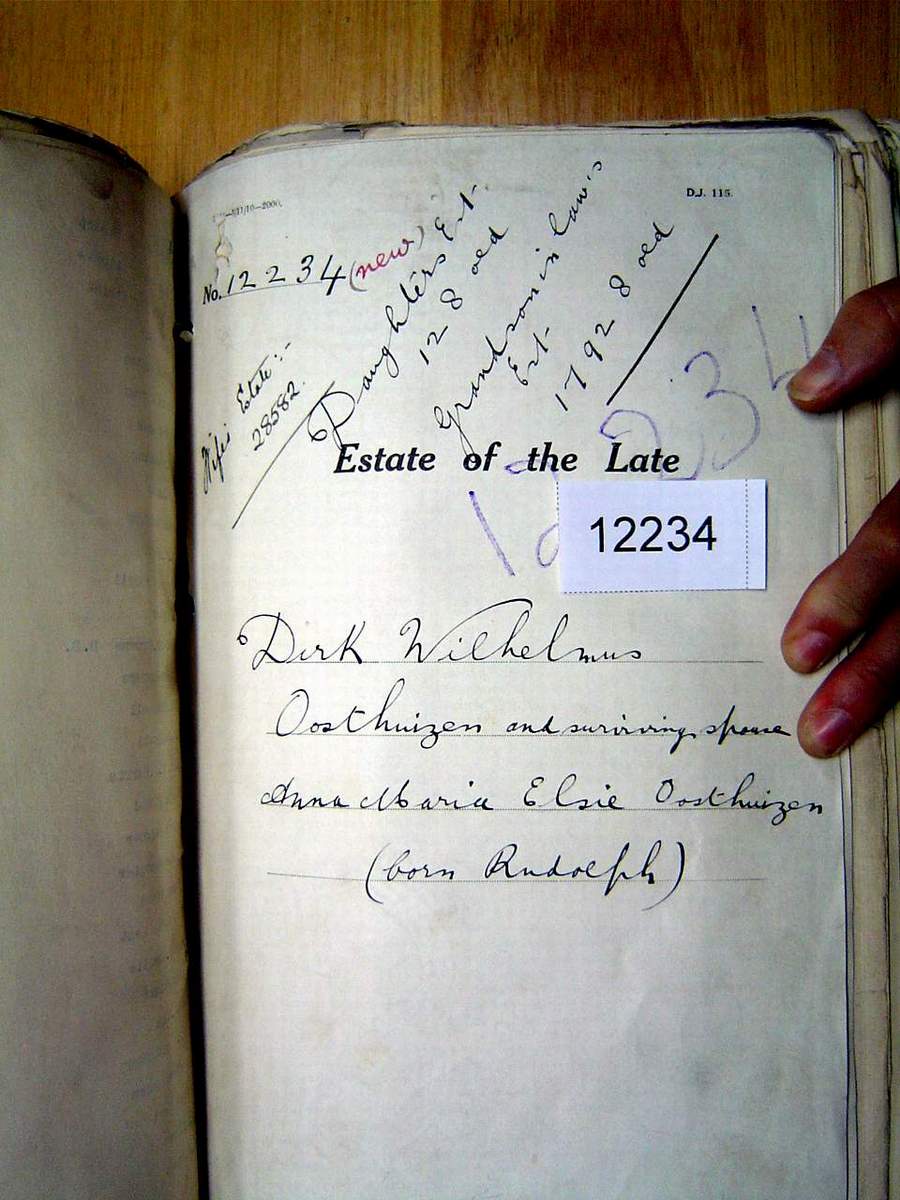 D.J. 115.
No. 12234 (new)
Daughters Est.
128 oed
Grandson in law's
Est.
1792 8 oed
Wife's Estate:-
28582.
Estate of the Late
12234
12234
Dirk Wilhelmus
Oosthuizen and surviving spouse
Anna Maria Elsie Oosthuizen
(born Rudolph)